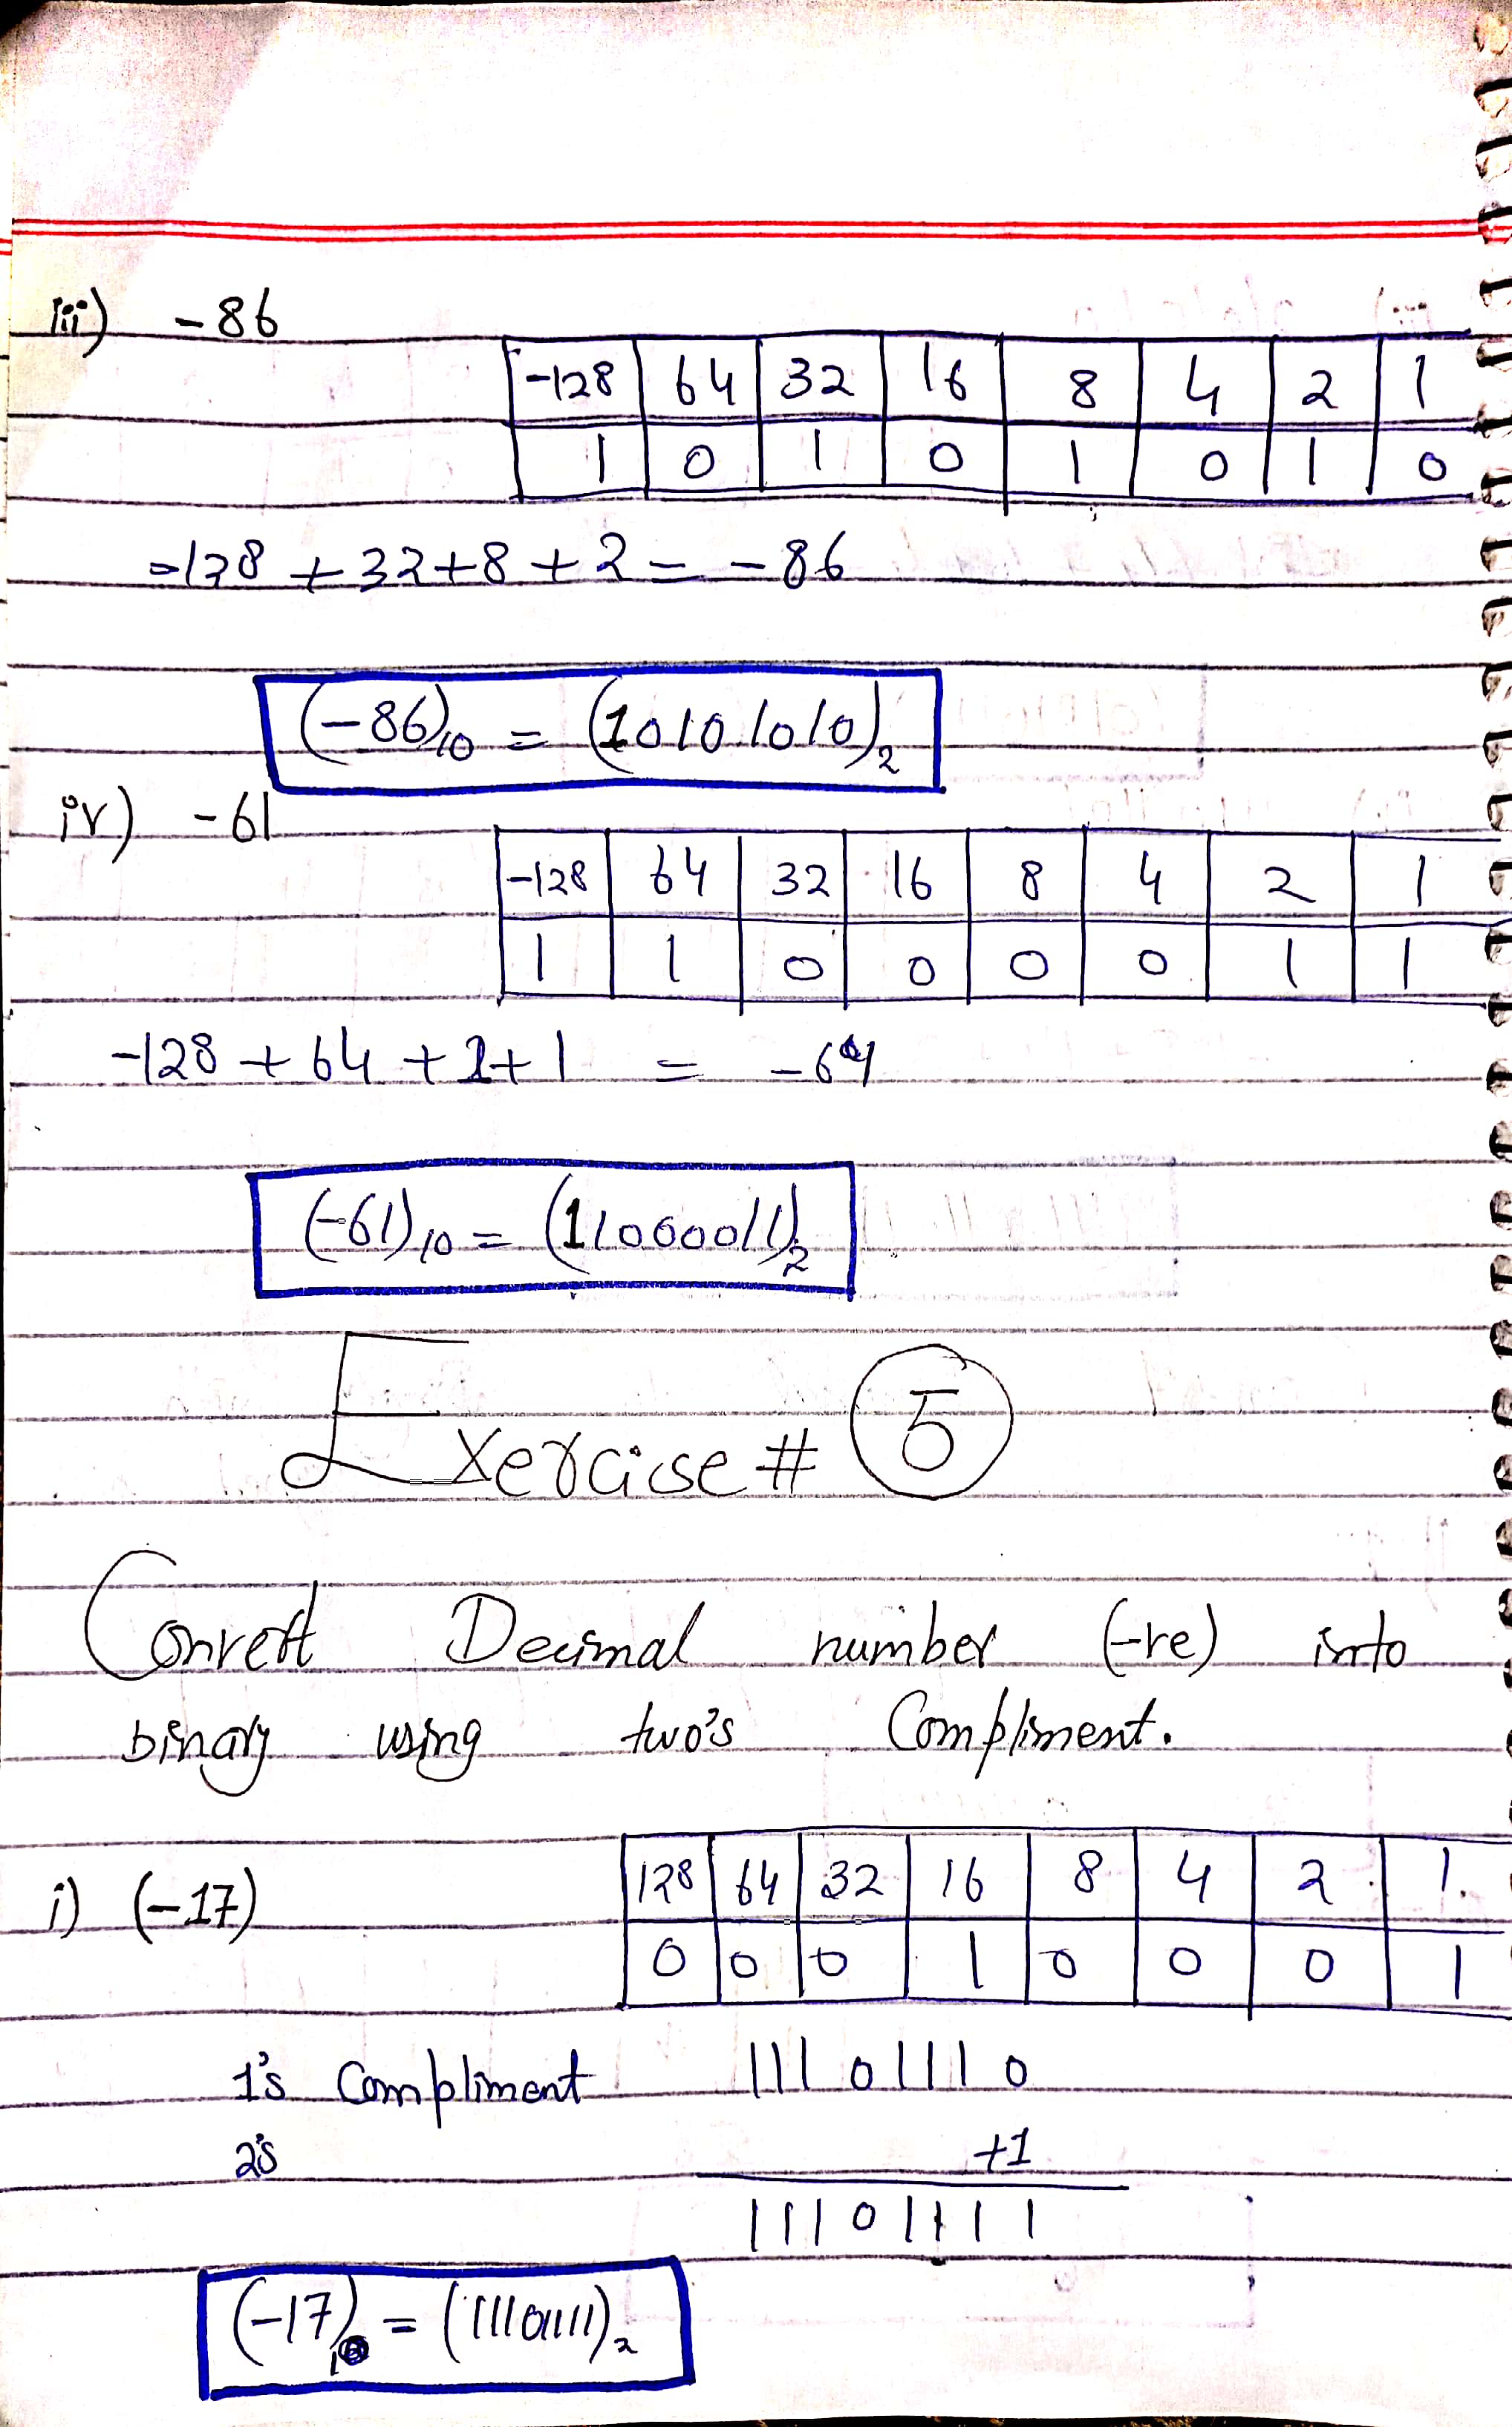 iii) -86
-128 64 32 16 8 4 2 1
1 0 1 0 1 0 1 0
-128 + 32 + 8 + 2 = -86
(-86)10 = (10101010)2
iv) -61
-128 64 32 16 8 4 2 1
1 1 0 0 0 0 1 1
-128 + 64 + 2 + 1 =
(-61)10 = (11000011)2
Exercise # 5
Convert Decimal number (-ve) into
binary using two's Compliment.
i) (-17)
128 64 32 16 8 4 2 1
0 0 0 1 0 0 0 1
1's Compliment 11101110
2's +1
11101111
(-17)10 = (11101111)2